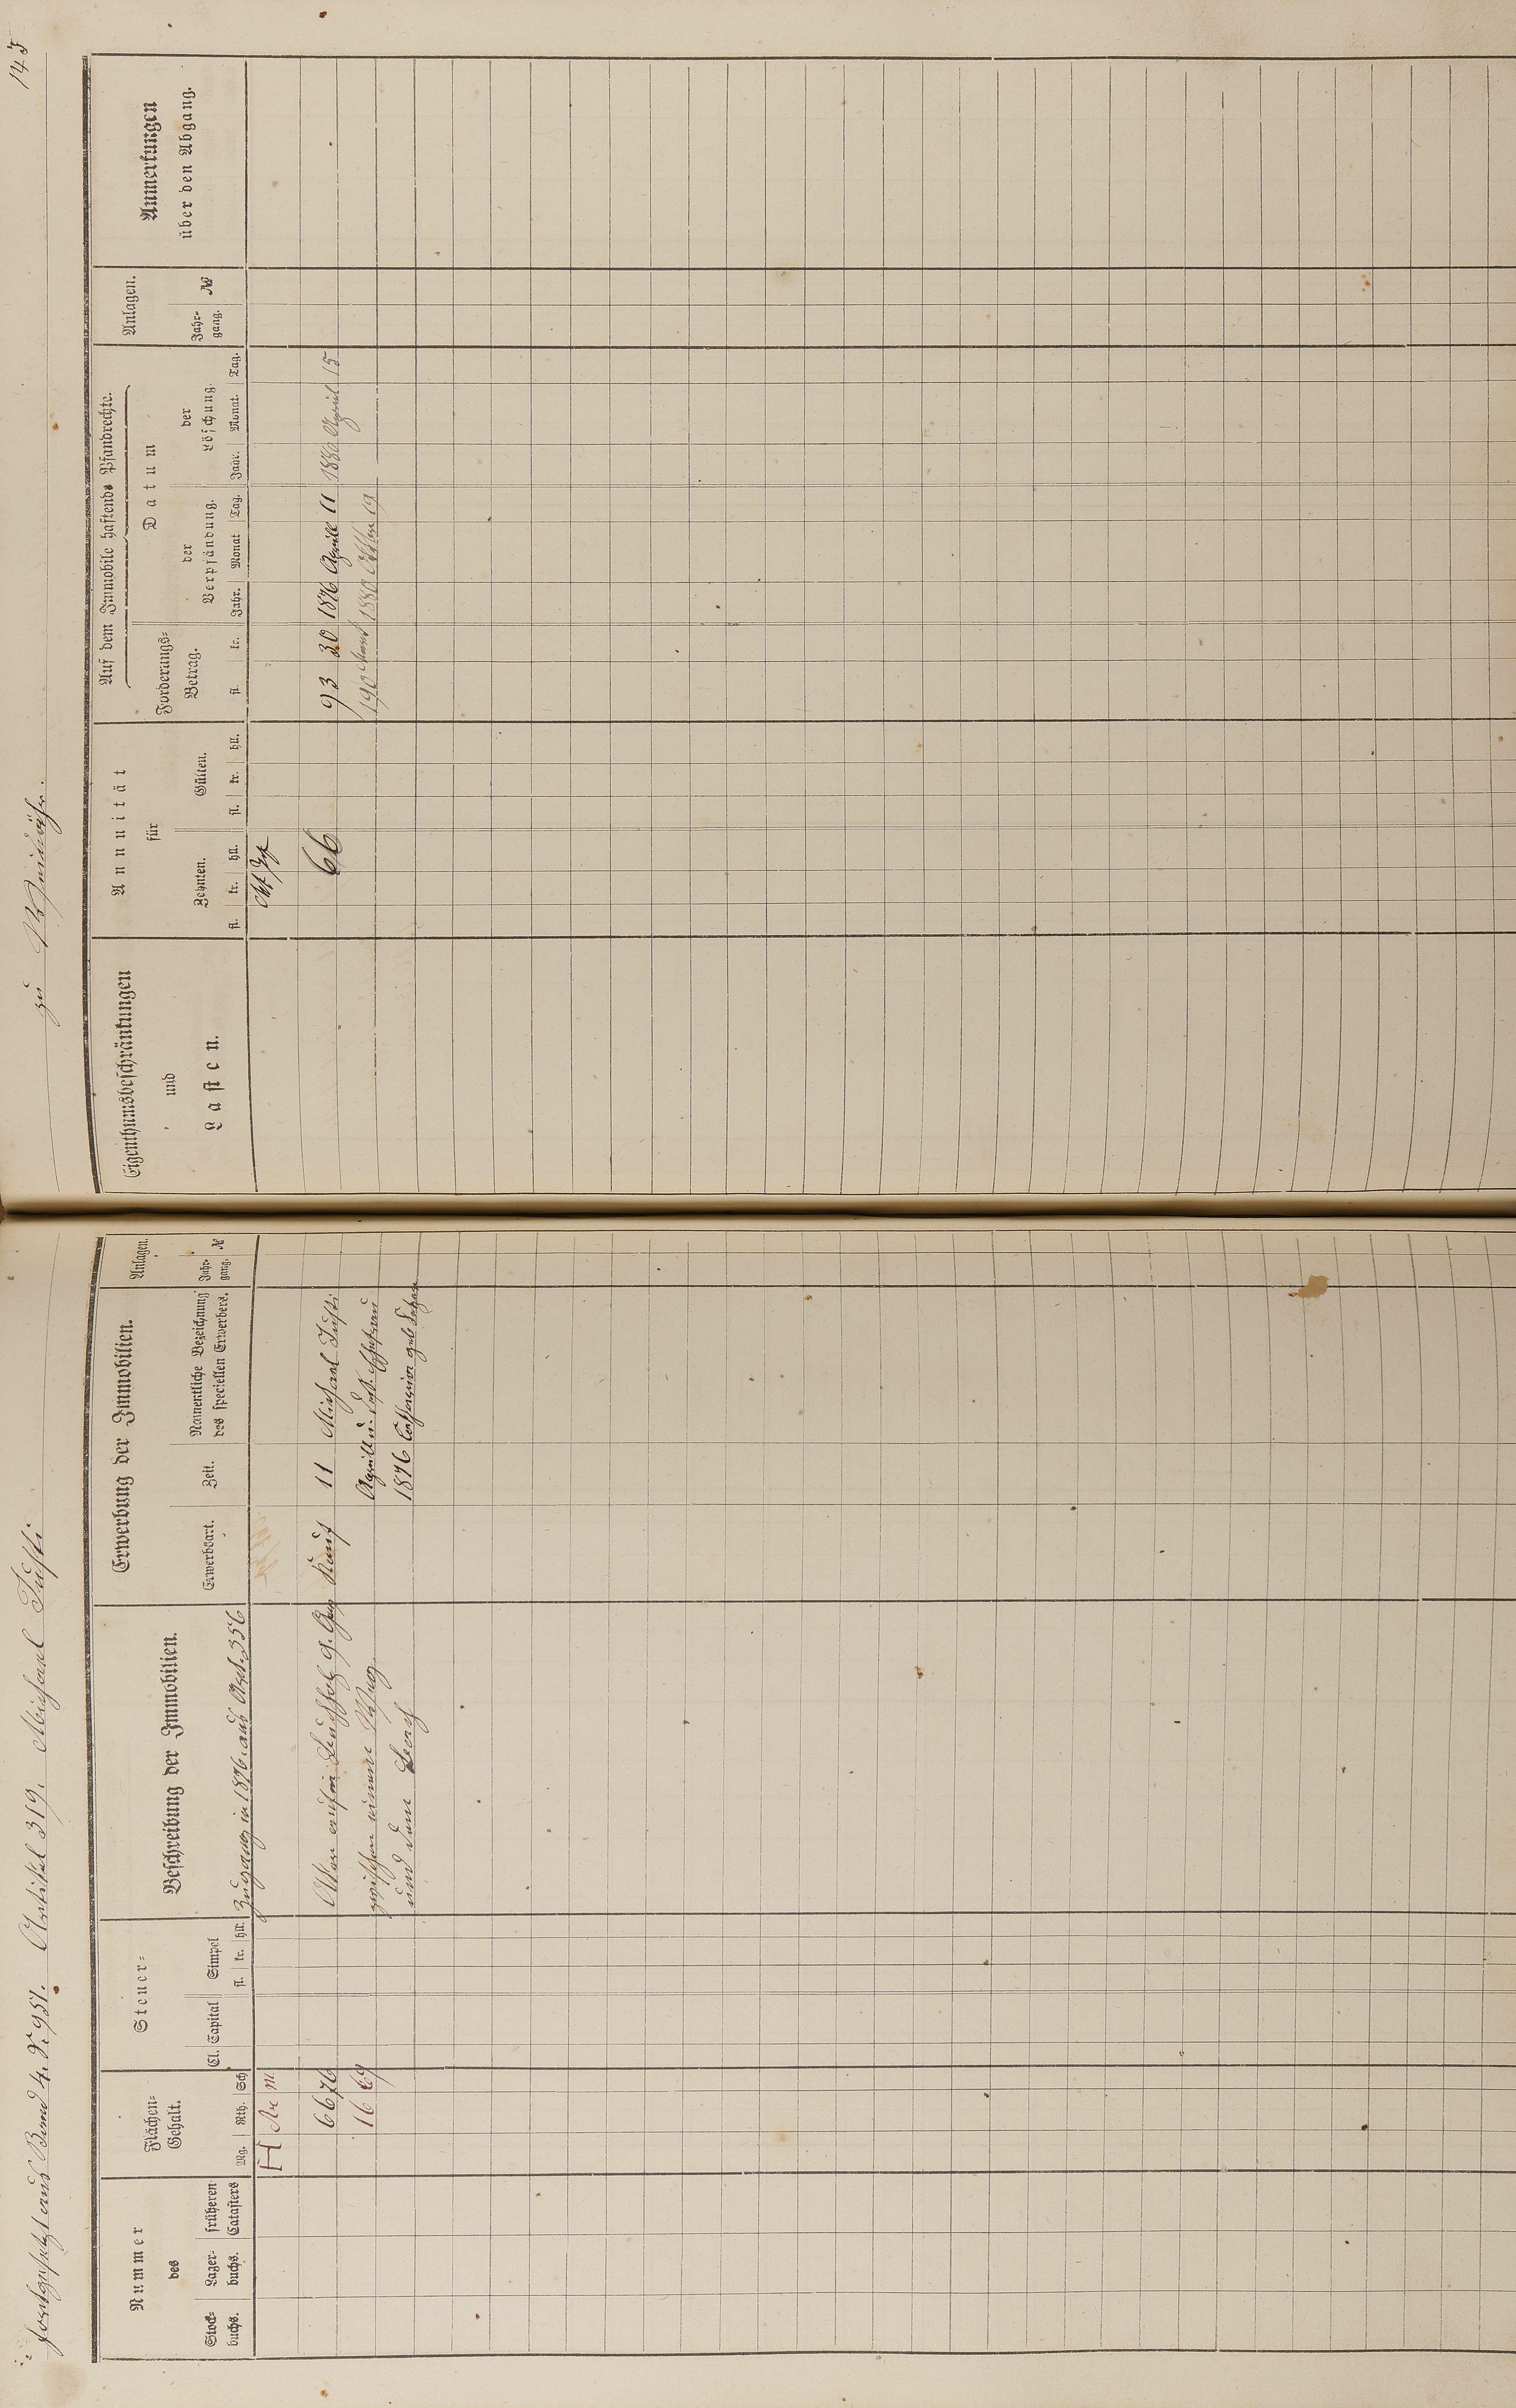 fortgesetzt aus Band 4. S. 951. Artikel 319. Michael Justi
Nummer
des
Stock-
buchs.
Lager-
buchs.
früheren
Catasters
Flächen-
Gehalt.
Mg. Rth. Sch
Steuer-
Cl. Capital
Simpel
fl. kr. hll.
Beschreibung der Immobilien.
Erwerbung der Immobilien.
Erwerbsart.
Zeit.
Namentliche Bezeichnung
des speciellen Erwerbers.
Anlagen.
Jahr-
gang.
№
H Ar m
Zugang in 1876. aus Art. 356
66 76
Acker
Kauf
11
Michael Justi
16 69
zwischen einem
April
u. dess. Ehefrau
und dem
1876
Catharine geb.
zu
143
Eigenthumsbeschränkungen
und
Lasten.
Annuität
für
Zehnten.
fl. kr. hll.
Gülten.
fl. kr. hll.
Auf dem Immobile haftende Pfandrechte.
Forderungs-
Betrag.
fl. kr.
Datum
der
Verpfändung.
Jahr. Monat Tag.
der
Löschung.
Jahr. Monat. Tag.
Anlagen.
Jahr-
gang.
№
Anmerkungen
über den Abgang.
66
93 30 1876 April 11 1880 April 15
190 Mark 1880 Oktbr 19